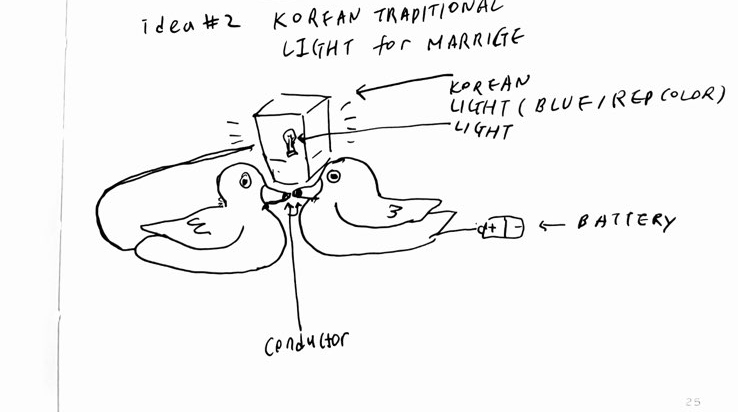 idea #2 KOREAN TRADITIONAL
LIGHT for MARRIGE
KOREAN
LIGHT ( BLUE / RED COLOR )
LIGHT
+ -
BATTERY
conductor
25